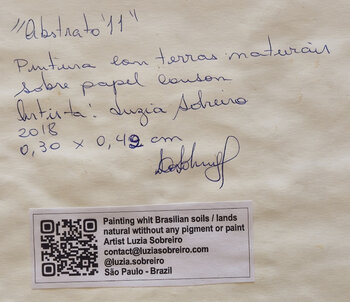 "Abstrato 11"
Pintura com terras naturais
sobre papel canson
Artista: Luzia Sobreiro
2018
0,30 x 0,42 cm
Painting whit Brasilian soils / lands
natural wtithout any pigment or paint
Artist Luzia Sobreiro
contact@luziasobreiro.com
@luzia.sobreiro
São Paulo - Brazil